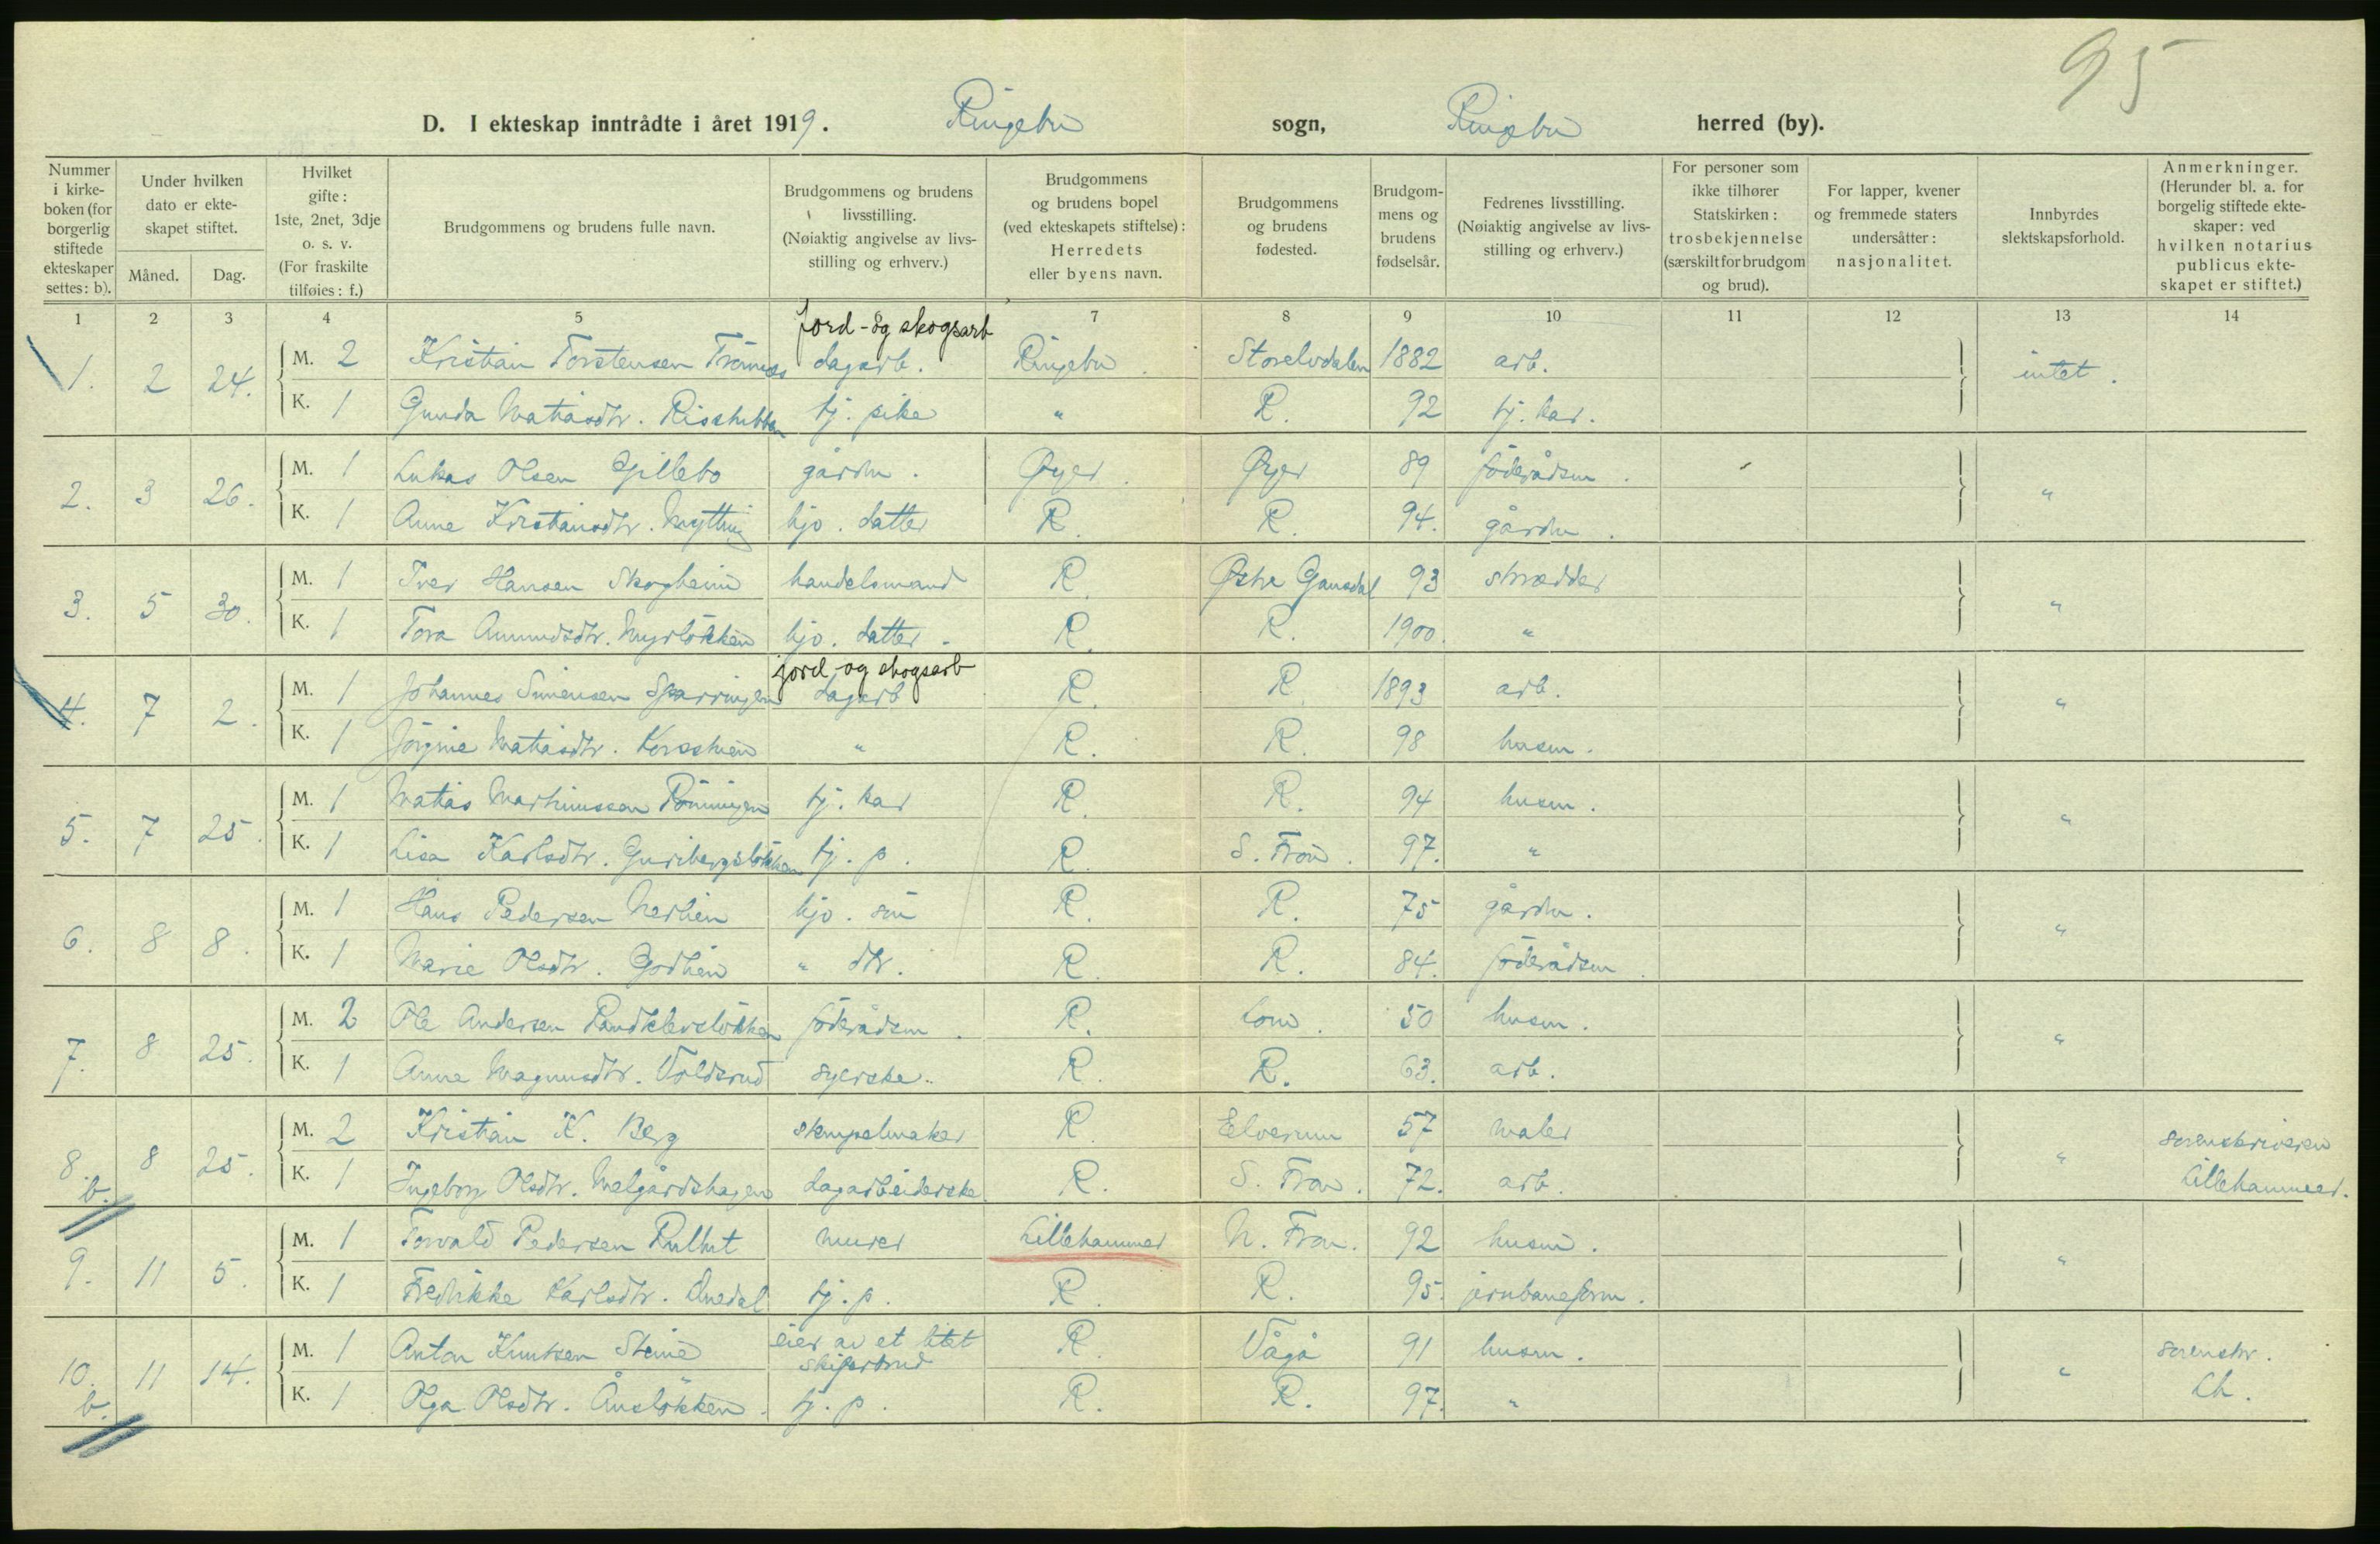 95
D. I ekteskap inntrådte i året 1919. Ringebu sogn, Ringebu herred (by).
Nummer i kirke-boken (for borgerlig stiftede ekteskaper settes: b).
Under hvilken dato er ekte-skapet stiftet.
Måned. Dag.
Hvilket gifte: 1ste, 2net, 3dje o. s. v. (For fraskilte tilføies: f.)
Brudgommens og brudens fulle navn.
Brudgommens og brudens livsstilling. (Nøiaktig angivelse av livs-stilling og erhverv.)
Brudgommens og brudens bopel (ved ekteskapets stiftelse): Herredets eller byens navn.
Brudgommens og brudens fødested.
Brudgom-mens og brudens fødselsår.
Fedrenes livsstilling. (Nøiaktig angivelse av livs-stilling og erhverv.)
For personer som ikke tilhører Statskirken: trosbekjennelse (særskilt for brudgom og brud).
For lapper, kvener og fremmede staters undersåtter: nasjonalitet.
Innbyrdes slektskapsforhold.
Anmerkninger. (Herunder bl. a. for borgelig stiftede ekte-skaper: ved hvilken notarius publicus ekte-skapet er stiftet.)
1 2 3 4 5 6 7 8 9 10 11 12 13 14
jord- og skogsarb
1. 2 24. M. 2 Kristian Torstensen dagarb. Ringebu Storelvdalen 1882 arb. intet.
K. 1 Gunda Matiasdtr. Risstubben tj. pike " R. 92 tj. kar.
2. 3 26. M. 1 Lukas Olsen Gillebo gårdm. Øyer. Øyer 89 föderådsm. "
K. 1 Anne Kristiansdtr. Mytting hjo. datter R. R. 94. gårdm.
3. 5 30. M. 1 Iver Hansen Skogheim handelsmand R. Østre Gausdal 93 skrædder "
K. 1 Tora Amundsdtr. Myrløkken hjo. datter. R. R. 1900. "
jord- og skogsarb
4. 7 2. M. 1 Johannes Simensen Sparringen dagarb R. R 1893 arb. "
K. 1 Jörgine Matiasdtr. " R. R. 98 husm.
5. 7 25. M. 1 Matias Martinussen Rönningen tj. kar R. R. 94 husm. "
K. 1 Lisa Karlsdtr. tj. p. R. S. Fron. 97. "
6. 8 8. M. 1 Hans Pedersen Nerlien hjo. sön R. R. 75 gårdm. "
K. 1 Marie Olsdtr. Godlien " dtr. R. R. 84. föderådsm.
7. 8 25. M. 2 Ole Andersen Randklevsløkken föderådsm. R. Lom. 50 husm. "
K. 1 Anne Magnusdtr. Voldsrud syerske. R. R. 63. arb.
8. b. 8 25. M. 2 Kristian K. Berg stempelmaker R. Elverum 57 maler " sorenskriveren
K. 1 Ingeborg Olsdtr. Melgårdshagen dagarbeiderske R. S. Fron. 72. arb. Lillehammer.
9. 11 5. M. 1 Torvald Pedersen Rulhut murer Lillehammer N. Fron. 92 husm. "
K. 1 Fredrikke Karlsdtr. tj. p. R. R. 95. jernbaneform.
10. b. 11 14. M. 1 Anton Knutsen Steine eier av et litet skiferbrud R. Vågå 91 husm. " sorenskr.
K. 1 Olga Olsdtr. Ånsløkken. tj. p. R. R. 97. " Lh.